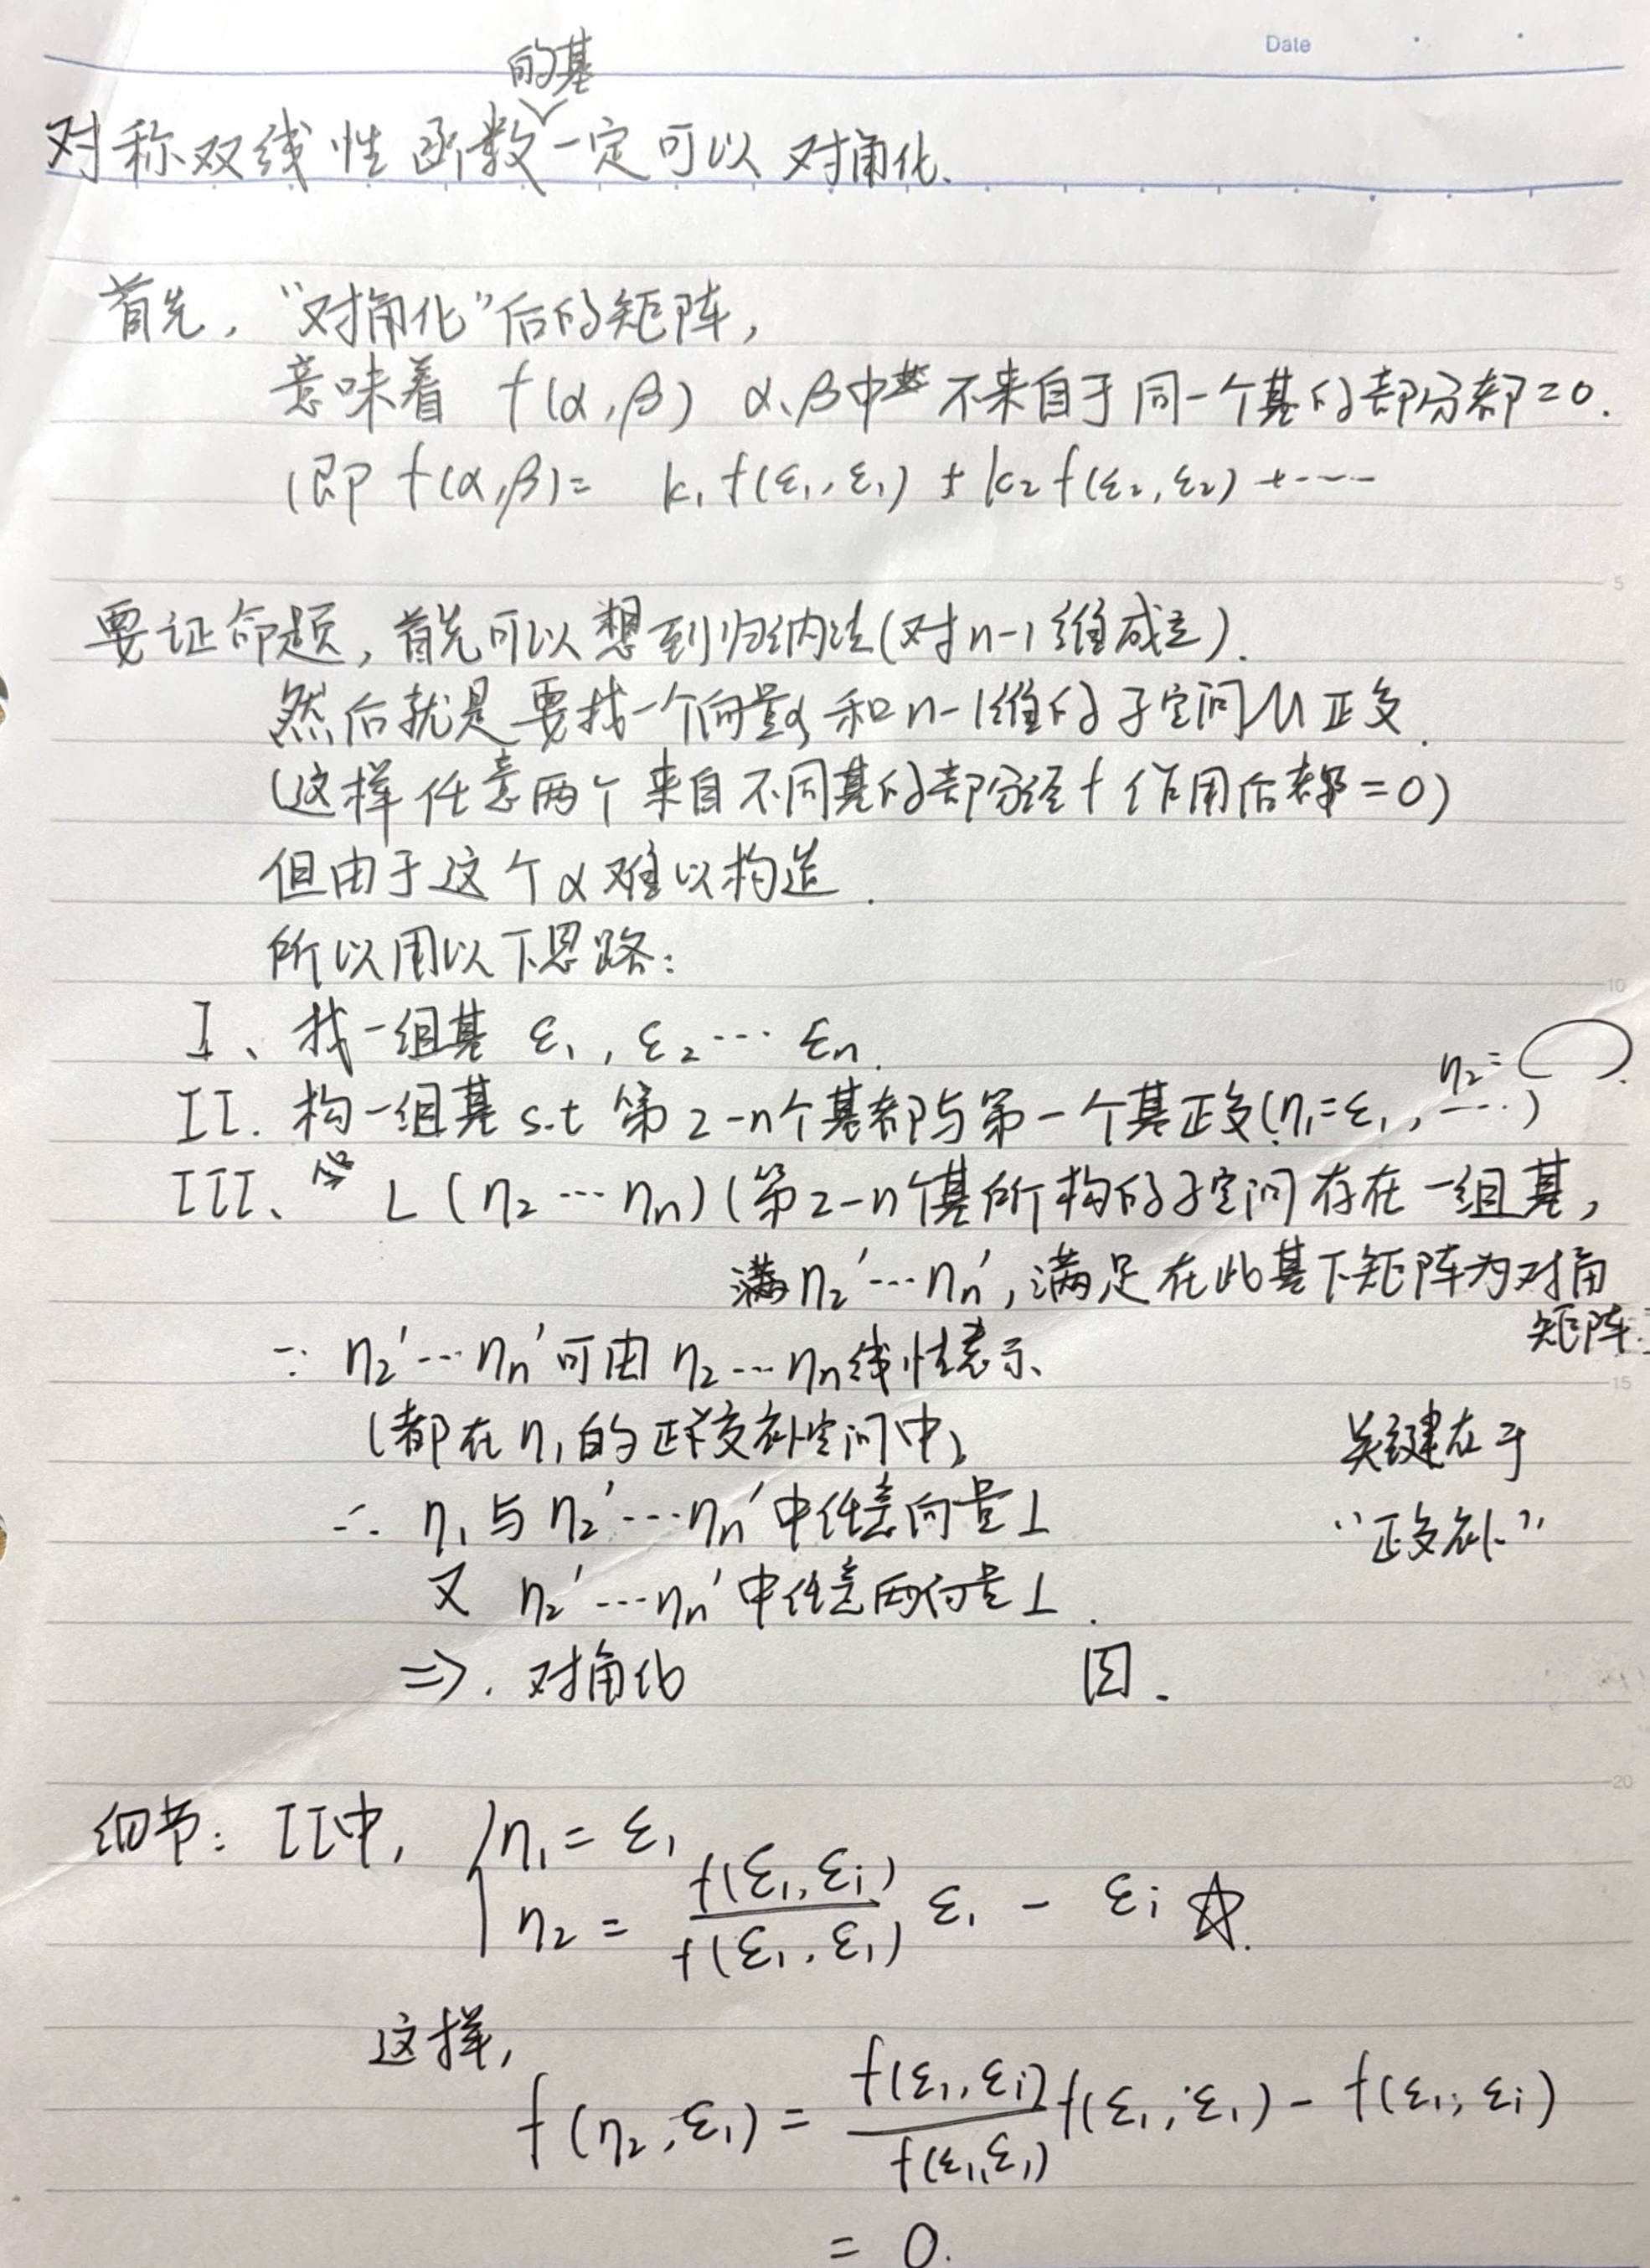 Date
的基
对称双线性函数一定可以对角化.
首先，“对角化”后的矩阵，
意味着 f(α,β) α、β中 不来自于同一个基的部分都=0.
(即 f(α,β)= k₁f(ε₁,ε₁) + k₂f(ε₂,ε₂) + ----
5
要证命题，首先可以想到归纳法(对n-1维成立).
然后就是要找一个向量α 和n-1维的子空间U正交.
(这样任意两个来自不同基的部分经f作用后都=0)
但由于这个α难以构造.
所以用以下思路：
10
I、找一组基 ε₁, ε₂ ⋯ εn.
η₂=
II. 构一组基 s.t 第2-n个基都与第一个基正交(η₁=ε₁, ⋯.)
III、 L(η₂ ⋯ ηn) (第2-n个基所构的子空间存在一组基,
满η₂′⋯ηn′, 满足在此基下矩阵为对角
矩阵.
∵ η₂′⋯ηn′可由 η₂⋯ηn线性表示
15
(都在η₁的正交补空间中)
关键在于
∴ η₁与η₂′⋯ηn′中任意向量⊥
“正交补”
又 η₂′⋯ηn′中任意两向量⊥.
⇒. 对角化
20
细节：II中, { η₁ = ε₁
η₂ = f(ε₁,εi)/f(ε₁,ε₁) ε₁ - εi ☆.
这样,
f(η₂,ε₁) = f(ε₁,εi)/f(ε₁,ε₁) f(ε₁,ε₁) - f(ε₁,εi)
= 0.